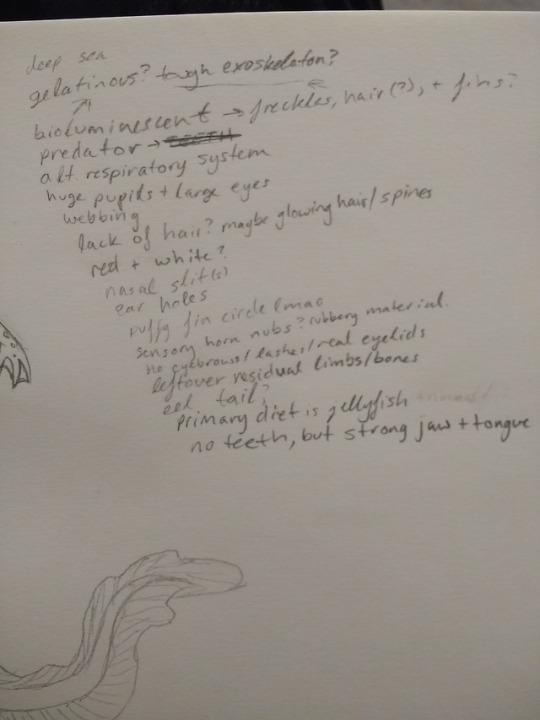 deep sea
gelatinous? tough exoskeleton?
bioluminescent → freckles, hair(?), + fins?
predator → TEETH
alt. respiratory system
huge pupils + large eyes
webbing
lack of hair? maybe glowing hair/spines
red + white?
nasal slit(s)
ear holes
puffy fin circle lmao
sensory horn nubs? rubbery material.
no eyebrows/lashes/real eyelids
leftover residual limbs/bones
eel tail?
primary diet is jellyfish
no teeth, but strong jaw + tongue